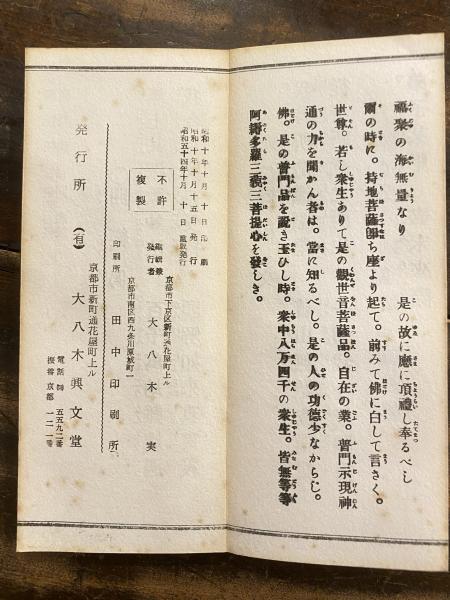 福聚の海無量なり 是の故に應に頂禮し奉るべし
爾の時に。持地菩薩即ち座より起て。前みて佛に白して言さく。
世尊。若し衆生ありて是の觀世音菩薩品。自在の業。普門示現神
通の力を聞かん者は。當に知るべし。是の人の功德少なからじ。
佛。是の普門品を說き玉ひし時。衆中八万四千の衆生。皆無等等
阿耨多羅三藐三菩提心を發しき。
昭和十年十月十日印刷
昭和十年十月十五日発行
昭和五十四年十月十日重版発行
不許
複製
編輯兼
発行者
京都市下京区新町通花屋町上ル
大八木実
印刷所
京都市南区西九条川原城町一
田中印刷所
発行所
京都市新町通花屋町上ル
(有)大八木興文堂
五五九二番
振替京都一二一番